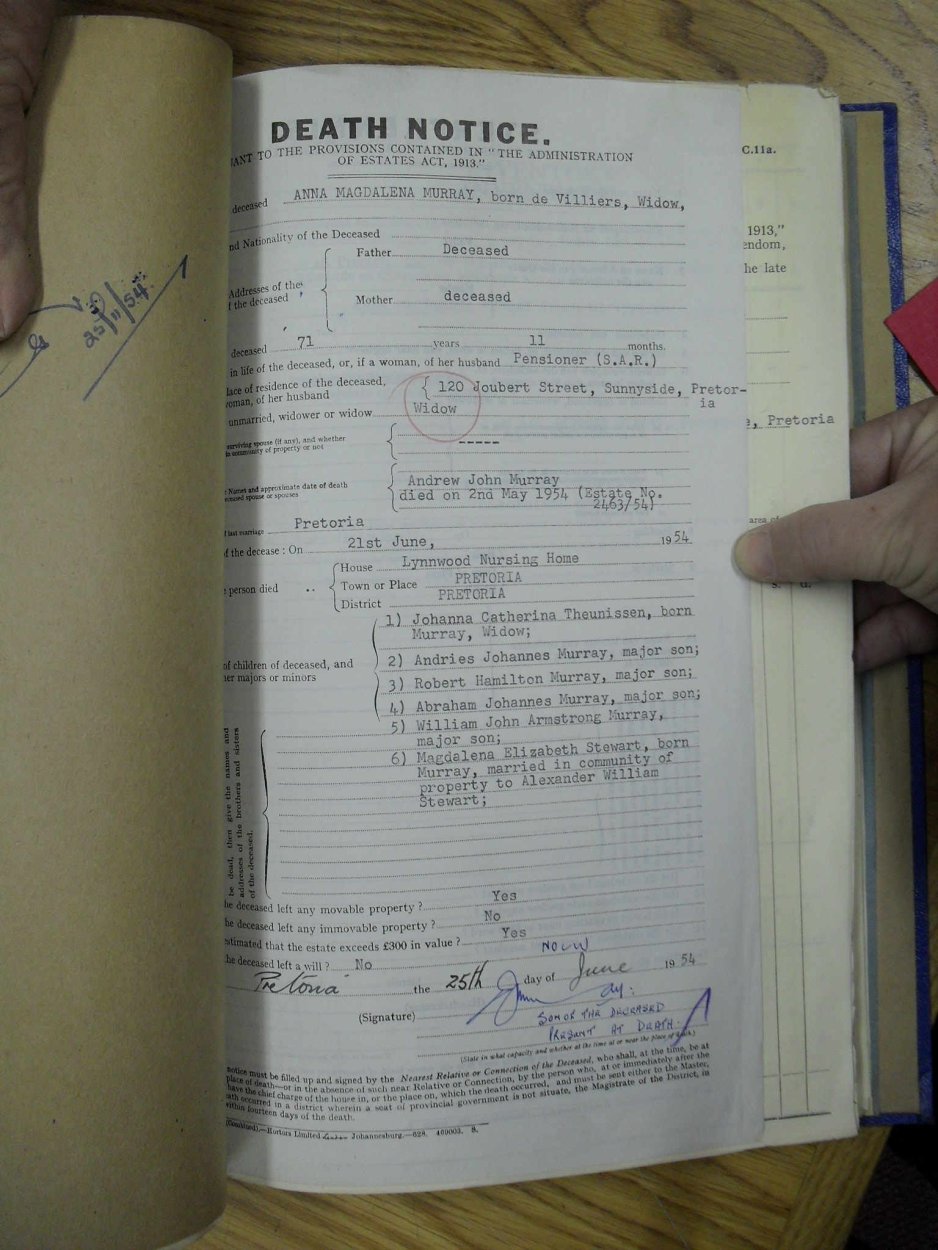 DEATH NOTICE.
TO THE PROVISIONS CONTAINED IN "THE ADMINISTRATION
OF ESTATES ACT, 1913."
deceased ANNA MAGDALENA MURRAY, born de Villiers, Widow,
Nationality of the Deceased
Father Deceased
Addresses of the
the deceased
Mother deceased
deceased 71 years 11 months.
in life of the deceased, or, if a woman, of her husband Pensioner (S.A.R.)
lace of residence of the deceased, 120 Joubert Street, Sunnyside, Pretor-
oman, of her husband ia
unmarried, widower or widow Widow
surviving spouse (if any), and whether
in community of property or not -----
Names and approximate date of death Andrew John Murray
spouse or spouses died on 2nd May 1954 (Estate No.
2463/54)
last marriage Pretoria
the decease : On 21st June, 1954
House Lynnwood Nursing Home
person died .. Town or Place PRETORIA
District PRETORIA
1) Johanna Catherina Theunissen, born
Murray, Widow;
of children of deceased, and 2) Andries Johannes Murray, major son;
her majors or minors 3) Robert Hamilton Murray, major son;
4) Abraham Johannes Murray, major son;
5) William John Armstrong Murray,
major son;
6) Magdalena Elizabeth Stewart, born
Murray, married in community of
property to Alexander William
Stewart;
be dead, then give the names and
addresses of the brothers and sisters
of the deceased.
he deceased left any movable property ? Yes
he deceased left any immovable property ? No
stimated that the estate exceeds £300 in value ? Yes
he deceased left a will ? No
Pretoria the 25th day of June 1954
(Signature)
SON OF THE DECEASED
PRESENT AT DEATH.
(State in what capacity and whether at the time at or near the place of death.)
notice must be filled up and signed by the Nearest Relative or Connection of the Deceased, who shall, at the time, be at
place of death—or in the absence of such near Relative or Connection, by the person who, at or immediately after the
have the chief charge of the house in, or the place on, which the death occurred, and must be sent either to the Master,
ath occurred in a district wherein a seat of provincial government is not situate, the Magistrate of the District, in
within fourteen days of the death.
(Combined).—Hortors Limited Johannesburg.—628. 469003. S.
25/11/54
C.11a.
1913,"
endom,
he late
, Pretoria
area of
s. d.